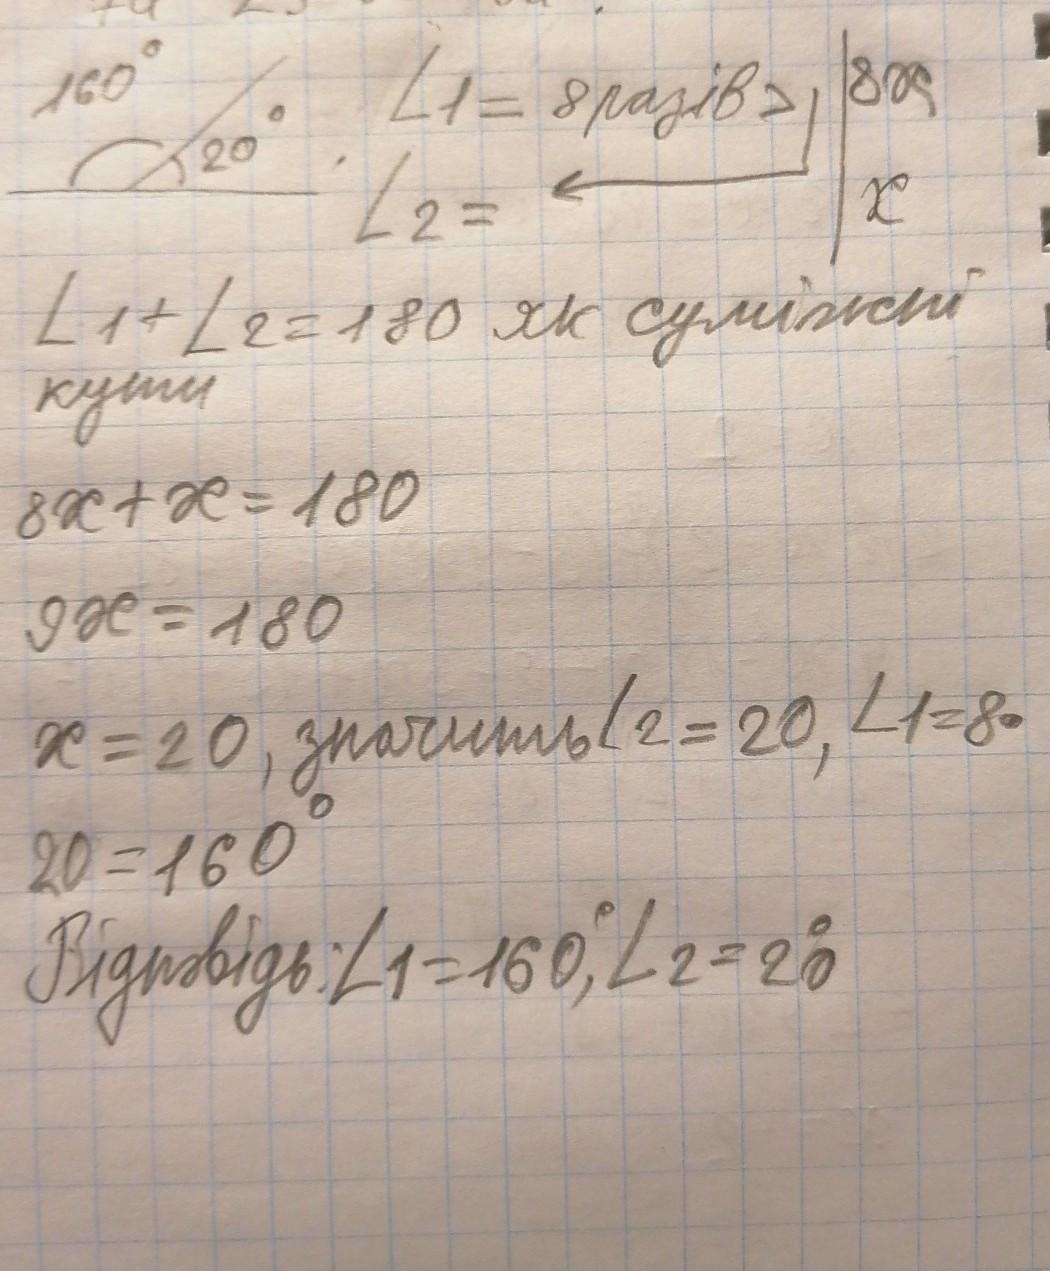 160° 20°
∠1 = 8 разів > 8x
∠2 = x
∠1 + ∠2 = 180 як суміжні
кути
8x + x = 180
9x = 180
x = 20, значить ∠2 = 20, ∠1 = 8·
20 = 160°
Відповідь: ∠1 = 160°, ∠2 = 20°